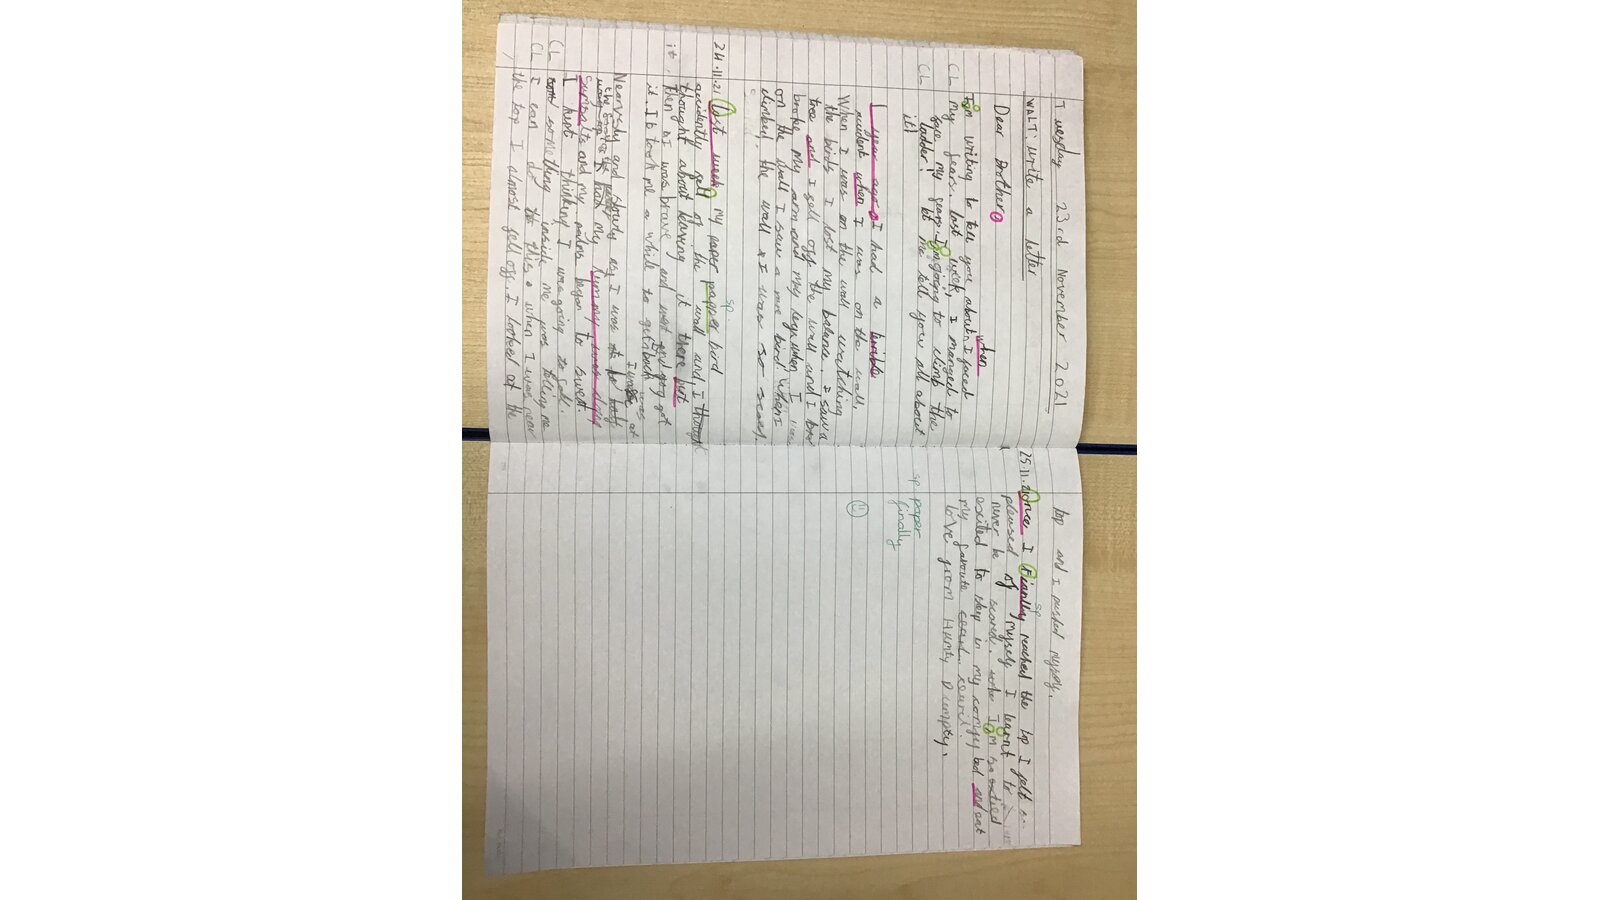 Tuesday 23rd November 2021
WALT: write a letter
Dear Brother,
when
I am writing to tell you about I faced
CL my fears. last week, I manged to
face my fears. I am going to climb the
CL ladder! let me tell you all about
it!
1 year ago, I had a terrible
accident when I was on the wall.
When I was on the wall watching
the birds I lost my balance. I saw a
tree and I fell off the wall and I
broke my arm and my leg. when I
on the wall I saw a bird. when I
climbed the wall I was so scared.
24.11.21 Last week, my paper papper bird
sp.
accidently fell of the wall and I
thought about leaving it there but
it. then as I was brave and got
it. It took me a while to get back
I was at
Nearvsly and slowly as I was
the my tummy
and my palms began to swet.
I kept thinking I was going to fall.
CL something inside me was telling me
CL I can do this when I was near
the top I almost fell off. I looked at the
top and I pushed myself.
sp
25.11.21 Once I Fianlly reached the top I felt
pleased of myself I learnt to
never be scared. I am so
exited to sleep in my comfy bed and eat
my favoute
love from Humty Dumpty.
sp. paper
finally